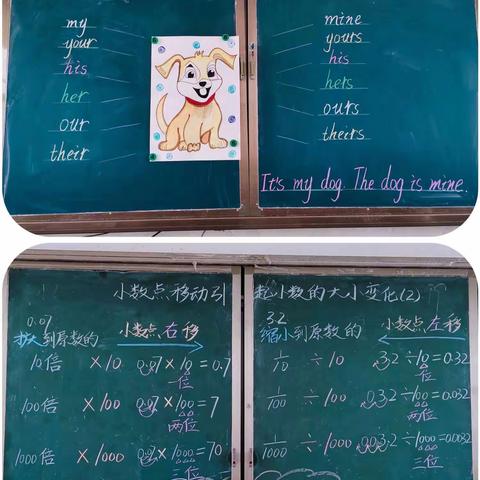 my
your
his
her
our
their
mine
yours
his
hers
ours
theirs
It's my dog. The dog is mine.
小数点移动引起小数的大小变化(2)
0.07
扩大到原数的 小数点右移
10倍 ×10 0.07×10=0.7
一位
100倍 ×100 0.07×100=7
两位
1000倍 ×1000 0.07×1000=70
三位
3.2
缩小到原数的 小数点左移
1/10 ÷10 3.2÷10=0.32
一位
1/100 ÷100 03.2÷100=0.032
两位
1/1000 ÷1000 003.2÷1000=0.0032
三位